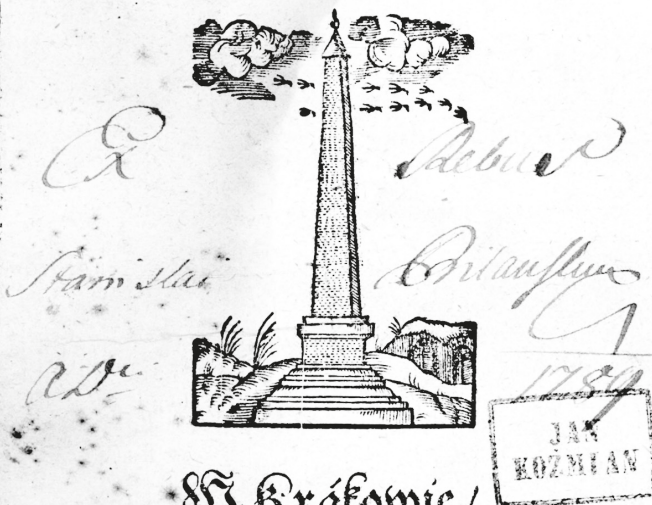 Ex Rebus
Stanislai
A Dni 1789
JAN
KOŹMIAN
W Krákowie/